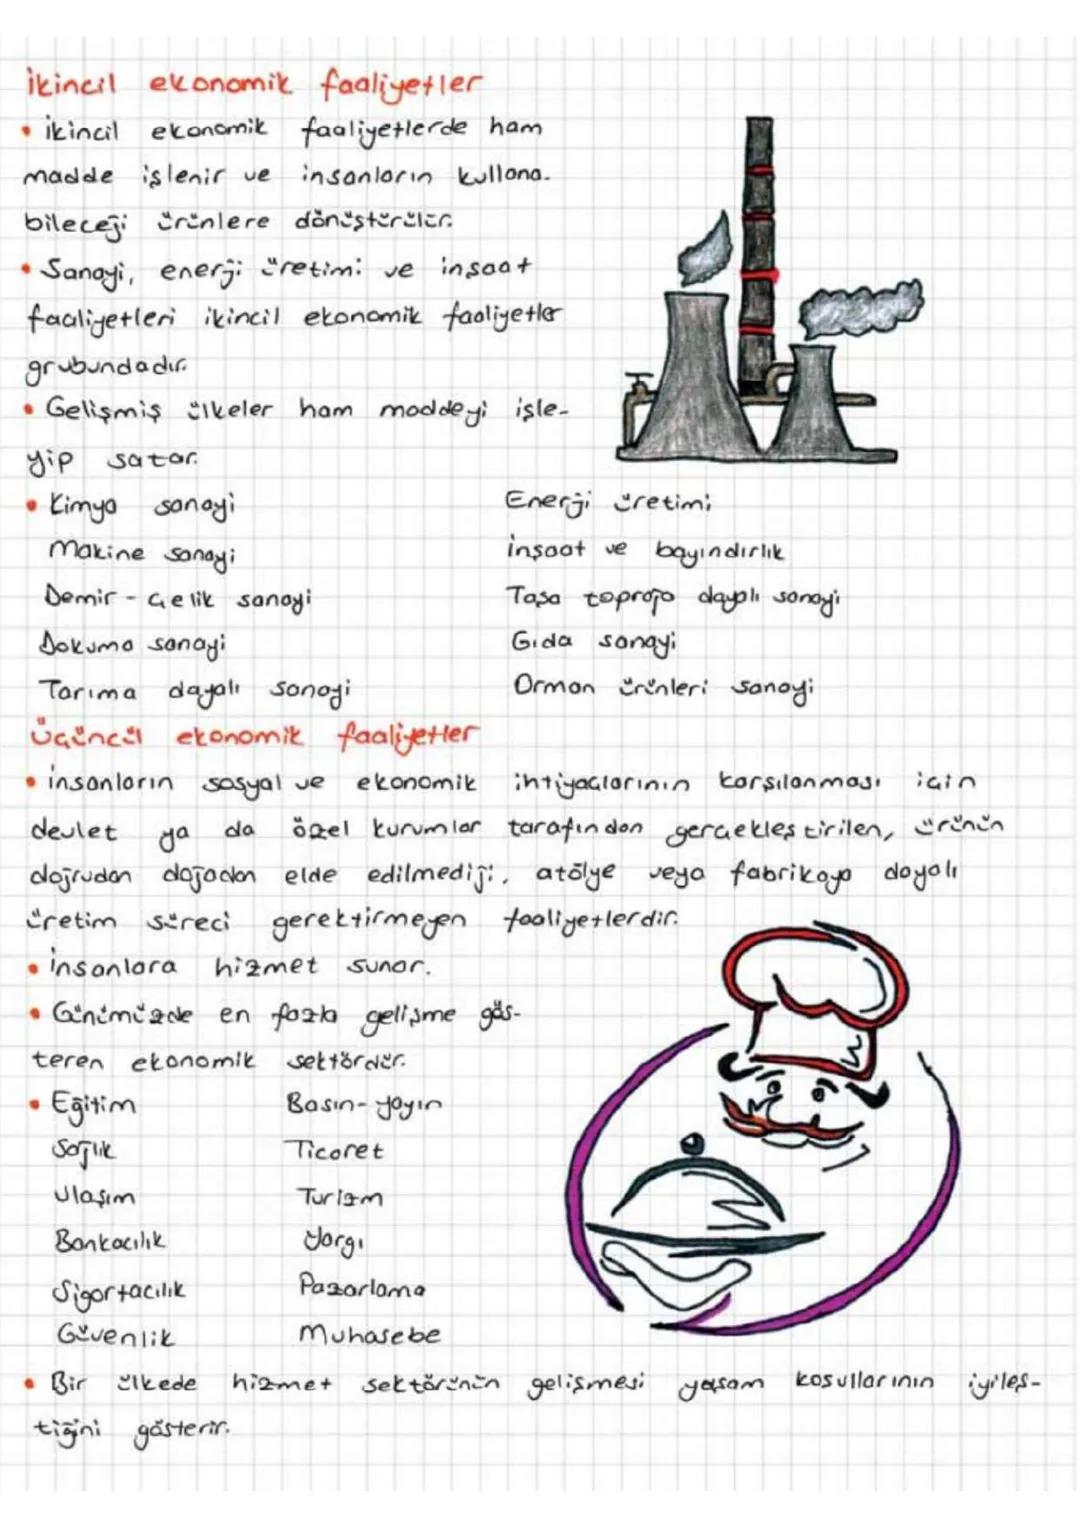 İkincil ekonomik faaliyetler
• İkincil ekonomik faaliyetlerde ham
madde işlenir ve insanların kullana-
bileceği ürünlere dönüştürülür.
• Sanayi, enerji üretimi ve inşaat
faaliyetleri ikincil ekonomik faaliyetler
grubundadır.
• Gelişmiş ülkeler ham maddeyi işle-
yip satar.
• Kimya sanayi
Makine sanayi
Demir-Çelik sanayi
Dokuma sanayi
Tarıma dayalı sanayi
Enerji üretimi
İnşaat ve bayındırlık
Taşa toprağa dayalı sanayi
Gıda sanayi
Orman ürünleri sanayi
Üçüncül ekonomik faaliyetler
• İnsanların sosyal ve ekonomik ihtiyaçlarının karşılanması için
devlet ya da özel kurumlar tarafından gerçekleştirilen, ürünün
doğrudan doğadan elde edilmediği, atölye veya fabrikaya dayalı
üretim süreci gerektirmeyen faaliyetlerdir.
• İnsanlara hizmet sunar.
• Günümüzde en fazla gelişme gös-
teren ekonomik sektördür.
• Eğitim
Sağlık
Ulaşım
Bankacılık
Sigortacılık
Güvenlik
Basın-yayın
Ticaret
Turizm
Yargı
Pazarlama
Muhasebe
• Bir ülkede hizmet sektörünün gelişmesi yaşam koşullarının iyileş-
tiğini gösterir.